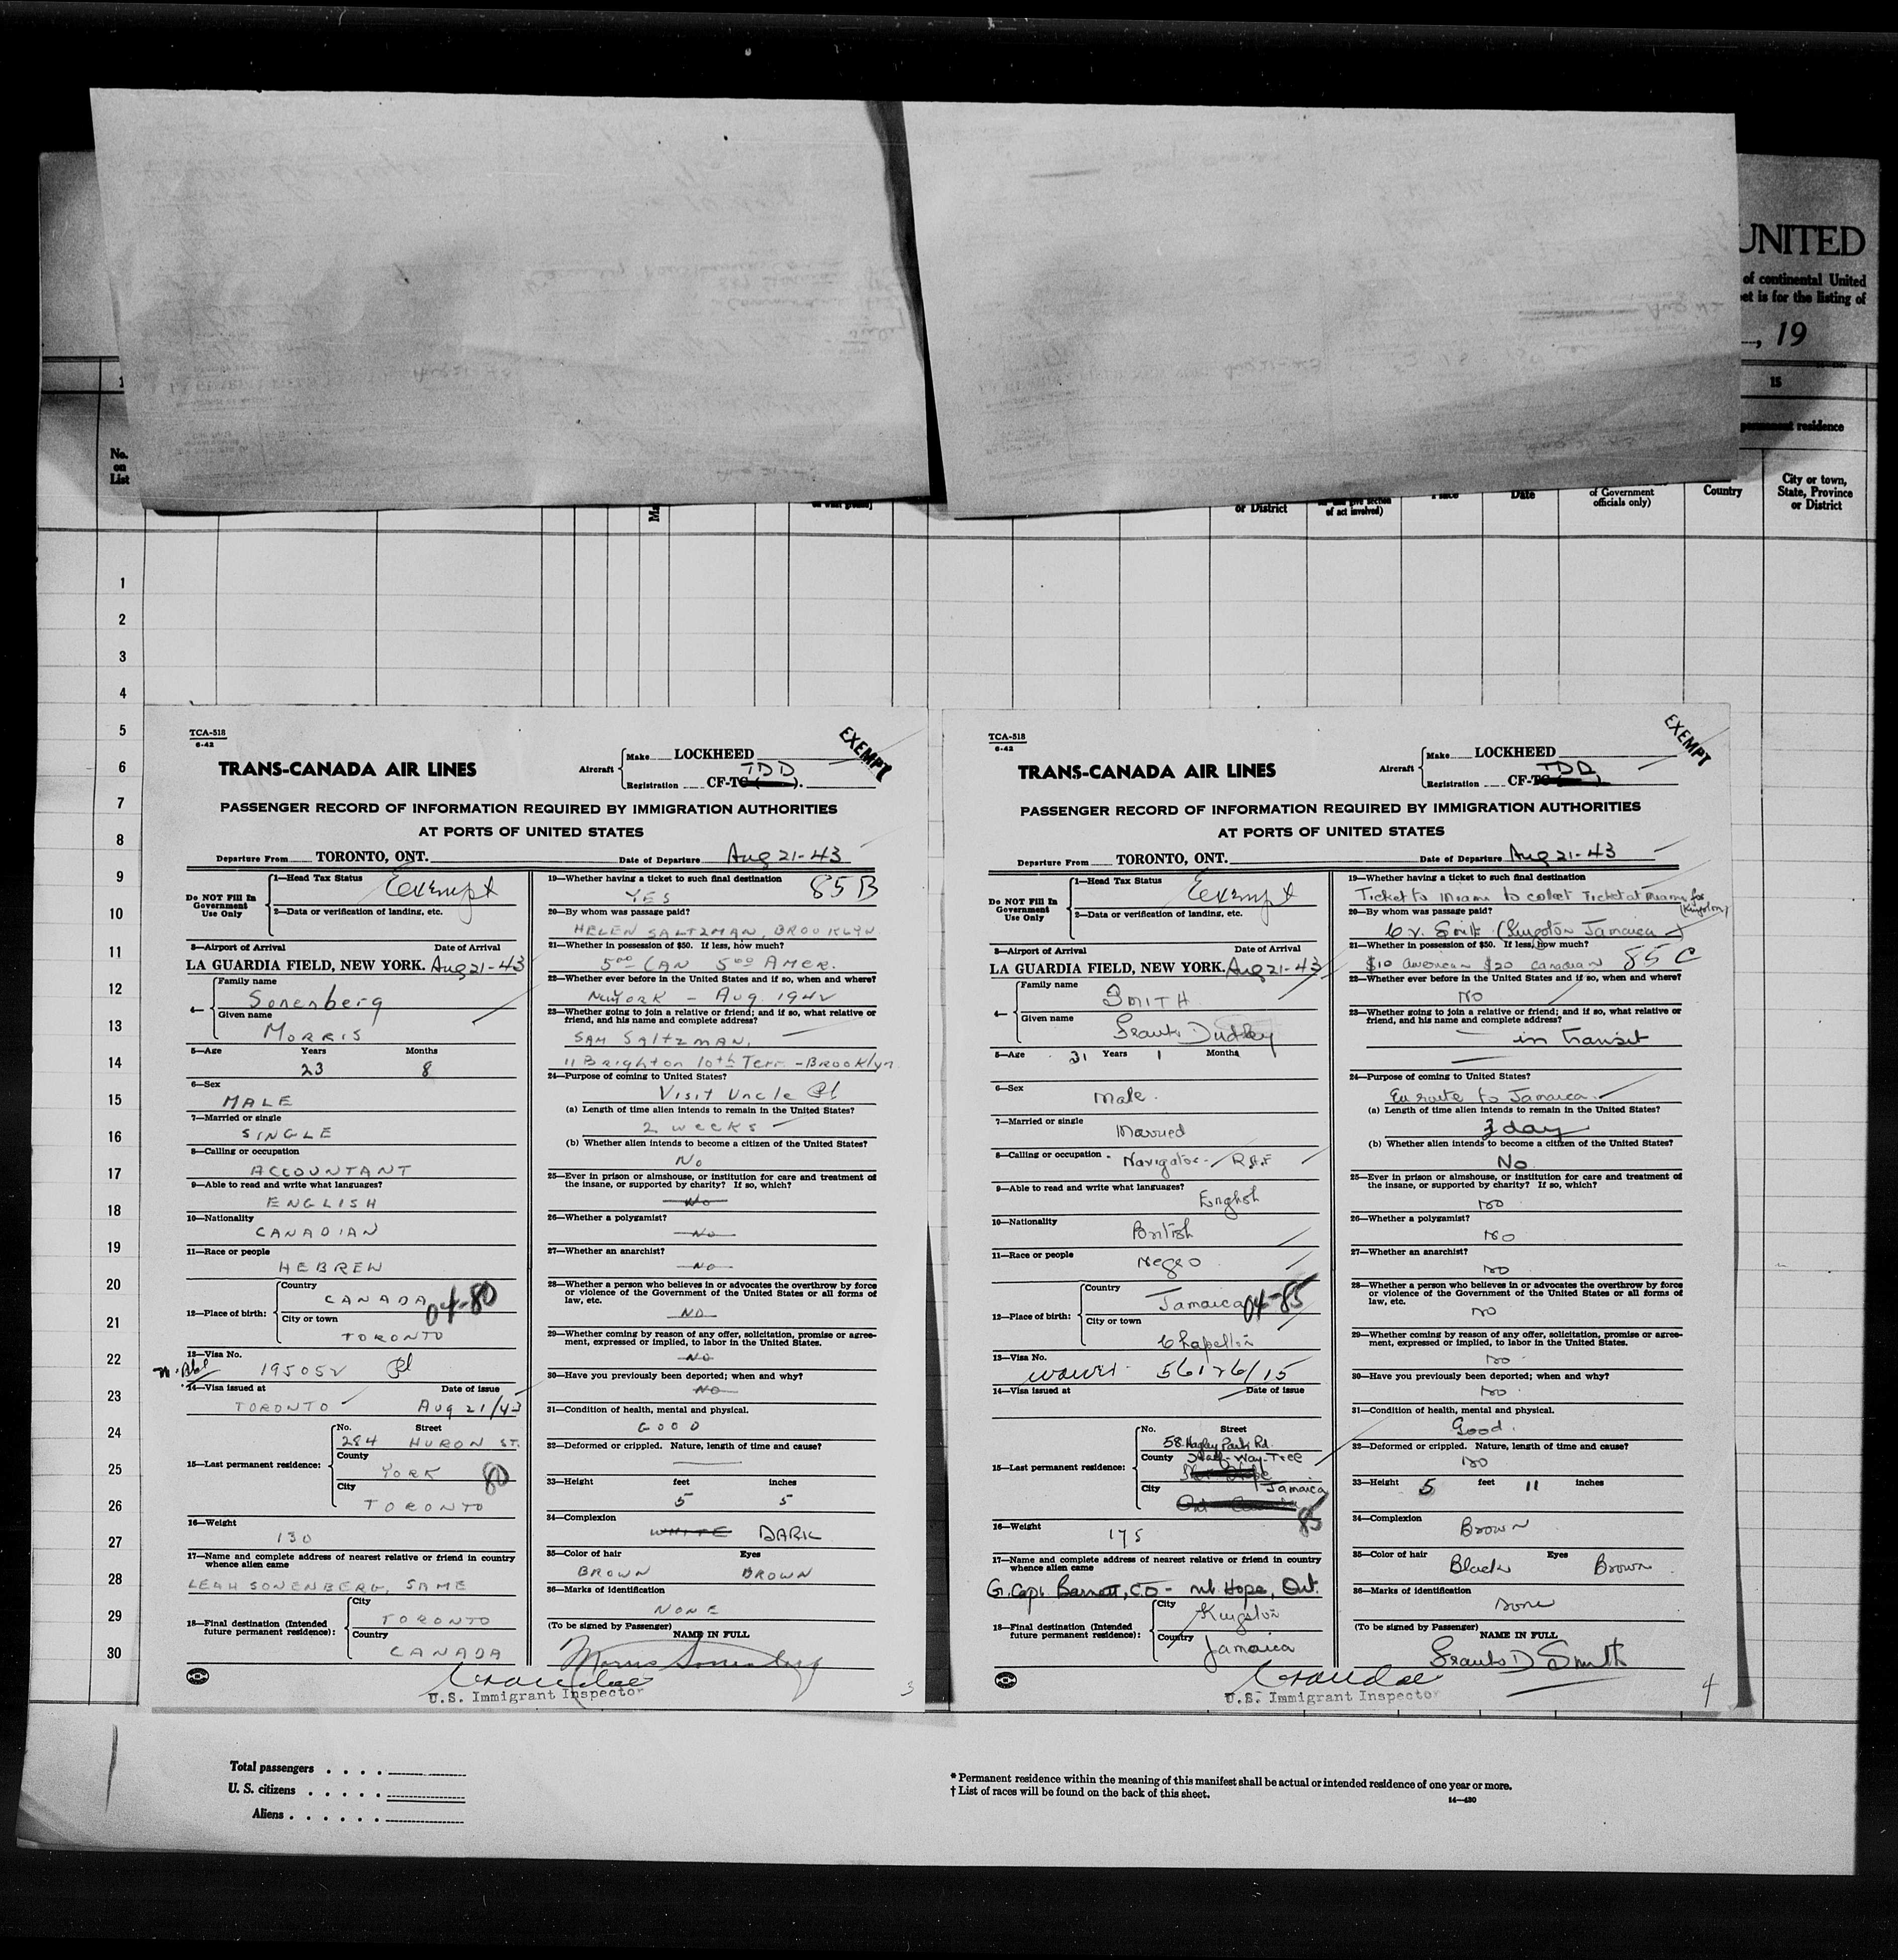 UNITED
of continental United
et is for the listing of
, 19
15
permanent residence
No.
on
List
or District
of act involved)
Place
Date
of Government
officials only)
Country
City or town,
State, Province
or District
1
2
3
4
5
6
7
8
9
10
11
12
13
14
15
16
17
18
19
20
21
22
23
24
25
26
27
28
29
30
TCA-518
6-42
TRANS-CANADA AIR LINES
Aircraft
Make LOCKHEED
Registration CF-TC TDD
EXEMPT
PASSENGER RECORD OF INFORMATION REQUIRED BY IMMIGRATION AUTHORITIES
AT PORTS OF UNITED STATES
Departure From TORONTO, ONT. Date of Departure Aug 21-43
Do NOT Fill In
Government
Use Only
1—Head Tax Status Exempt
2—Data or verification of landing, etc.
3—Airport of Arrival Date of Arrival
LA GUARDIA FIELD, NEW YORK. Aug 21-43
4—
Family name
Sonenberg
Given name
MORRIS
5—Age Years Months
23 8
6—Sex
MALE
7—Married or single
SINGLE
8—Calling or occupation
ACCOUNTANT
9—Able to read and write what languages?
ENGLISH
10—Nationality
CANADIAN
11—Race or people
HEBREW
12—Place of birth:
Country
CANADA 04-80
City or town
TORONTO
13—Visa No.
195052
14—Visa issued at Date of issue
TORONTO Aug 21/43
15—Last permanent residence:
No. Street
284 HURON ST.
County
YORK 80
City
TORONTO
16—Weight
130
17—Name and complete address of nearest relative or friend in country
whence alien came
LEAH SONENBERG, SAME
18—Final destination (Intended
future permanent residence):
City
TORONTO
Country
CANADA
19—Whether having a ticket to such final destination
YES 85 B
20—By whom was passage paid?
HELEN SALTZMAN, BROOKLYN
21—Whether in possession of $50. If less, how much?
5.00 CAN 5.00 AMER.
22—Whether ever before in the United States and if so, when and where?
NEW YORK - AUG. 1942
23—Whether going to join a relative or friend; and if so, what relative or
friend, and his name and complete address?
SAM SALTZMAN,
11 Brighton 10th Terr. - Brooklyn
24—Purpose of coming to United States?
Visit Uncle
(a) Length of time alien intends to remain in the United States?
2 weeks
(b) Whether alien intends to become a citizen of the United States?
No
25—Ever in prison or almshouse, or institution for care and treatment of
the insane, or supported by charity? If so, which?
No
26—Whether a polygamist?
No
27—Whether an anarchist?
No
28—Whether a person who believes in or advocates the overthrow by force
or violence of the Government of the United States or all forms of
law, etc.
NO
29—Whether coming by reason of any offer, solicitation, promise or agree-
ment, expressed or implied, to labor in the United States.
NO
30—Have you previously been deported; when and why?
NO
31—Condition of health, mental and physical.
GOOD
32—Deformed or crippled. Nature, length of time and cause?
33—Height feet inches
5 5
34—Complexion
WHITE DARK
35—Color of hair Eyes
BROWN BROWN
36—Marks of identification
NONE
(To be signed by Passenger)
NAME IN FULL
Morris Sonenberg
U.S. Immigrant Inspector
3
TCA-518
6-42
TRANS-CANADA AIR LINES
Aircraft
Make LOCKHEED
Registration CF-TC TDD
EXEMPT
PASSENGER RECORD OF INFORMATION REQUIRED BY IMMIGRATION AUTHORITIES
AT PORTS OF UNITED STATES
Departure From TORONTO, ONT. Date of Departure Aug 21-43
Do NOT Fill In
Government
Use Only
1—Head Tax Status Exempt
2—Data or verification of landing, etc.
3—Airport of Arrival Date of Arrival
LA GUARDIA FIELD, NEW YORK. Aug 21-43
4—
Family name
SMITH
Given name
Dudley
5—Age 31 Years 1 Months
6—Sex
Male.
7—Married or single
Married
8—Calling or occupation Navigator - R.A.F
9—Able to read and write what languages?
English
10—Nationality
British
11—Race or people
Negro
12—Place of birth:
Country
Jamaica 04-85
City or town
Chapelton
13—Visa No.
56126/15
14—Visa issued at Date of issue
15—Last permanent residence:
No. Street
58 Hagley Park Rd.
County Half-Way-Tree
City Jamaica
85
16—Weight
175
17—Name and complete address of nearest relative or friend in country
whence alien came
G. Capt. Barnett, C.O - Mt Hope, Ont.
18—Final destination (Intended
future permanent residence):
City
Kingston
Country
Jamaica
19—Whether having a ticket to such final destination
Ticket to Miami to collect Ticket at Miami for
(Kingston)
20—By whom was passage paid?
(Kingston Jamaica)
21—Whether in possession of $50. If less, how much?
$10 American $20 Canadian 85 C
22—Whether ever before in the United States and if so, when and where?
No
23—Whether going to join a relative or friend; and if so, what relative or
friend, and his name and complete address?
in transit
24—Purpose of coming to United States?
En route to Jamaica
(a) Length of time alien intends to remain in the United States?
day
(b) Whether alien intends to become a citizen of the United States?
No
25—Ever in prison or almshouse, or institution for care and treatment of
the insane, or supported by charity? If so, which?
No
26—Whether a polygamist?
No
27—Whether an anarchist?
No
28—Whether a person who believes in or advocates the overthrow by force
or violence of the Government of the United States or all forms of
law, etc.
No
29—Whether coming by reason of any offer, solicitation, promise or agree-
ment, expressed or implied, to labor in the United States.
No
30—Have you previously been deported; when and why?
No
31—Condition of health, mental and physical.
Good.
32—Deformed or crippled. Nature, length of time and cause?
No
33—Height 5 feet 11 inches
34—Complexion
Brown
35—Color of hair Eyes
Black Brown
36—Marks of identification
None
(To be signed by Passenger)
NAME IN FULL
D Smith
U.S. Immigrant Inspector
4
Total passengers
U. S. citizens
Aliens
* Permanent residence within the meaning of this manifest shall be actual or intended residence of one year or more.
† List of races will be found on the back of this sheet.
14—430